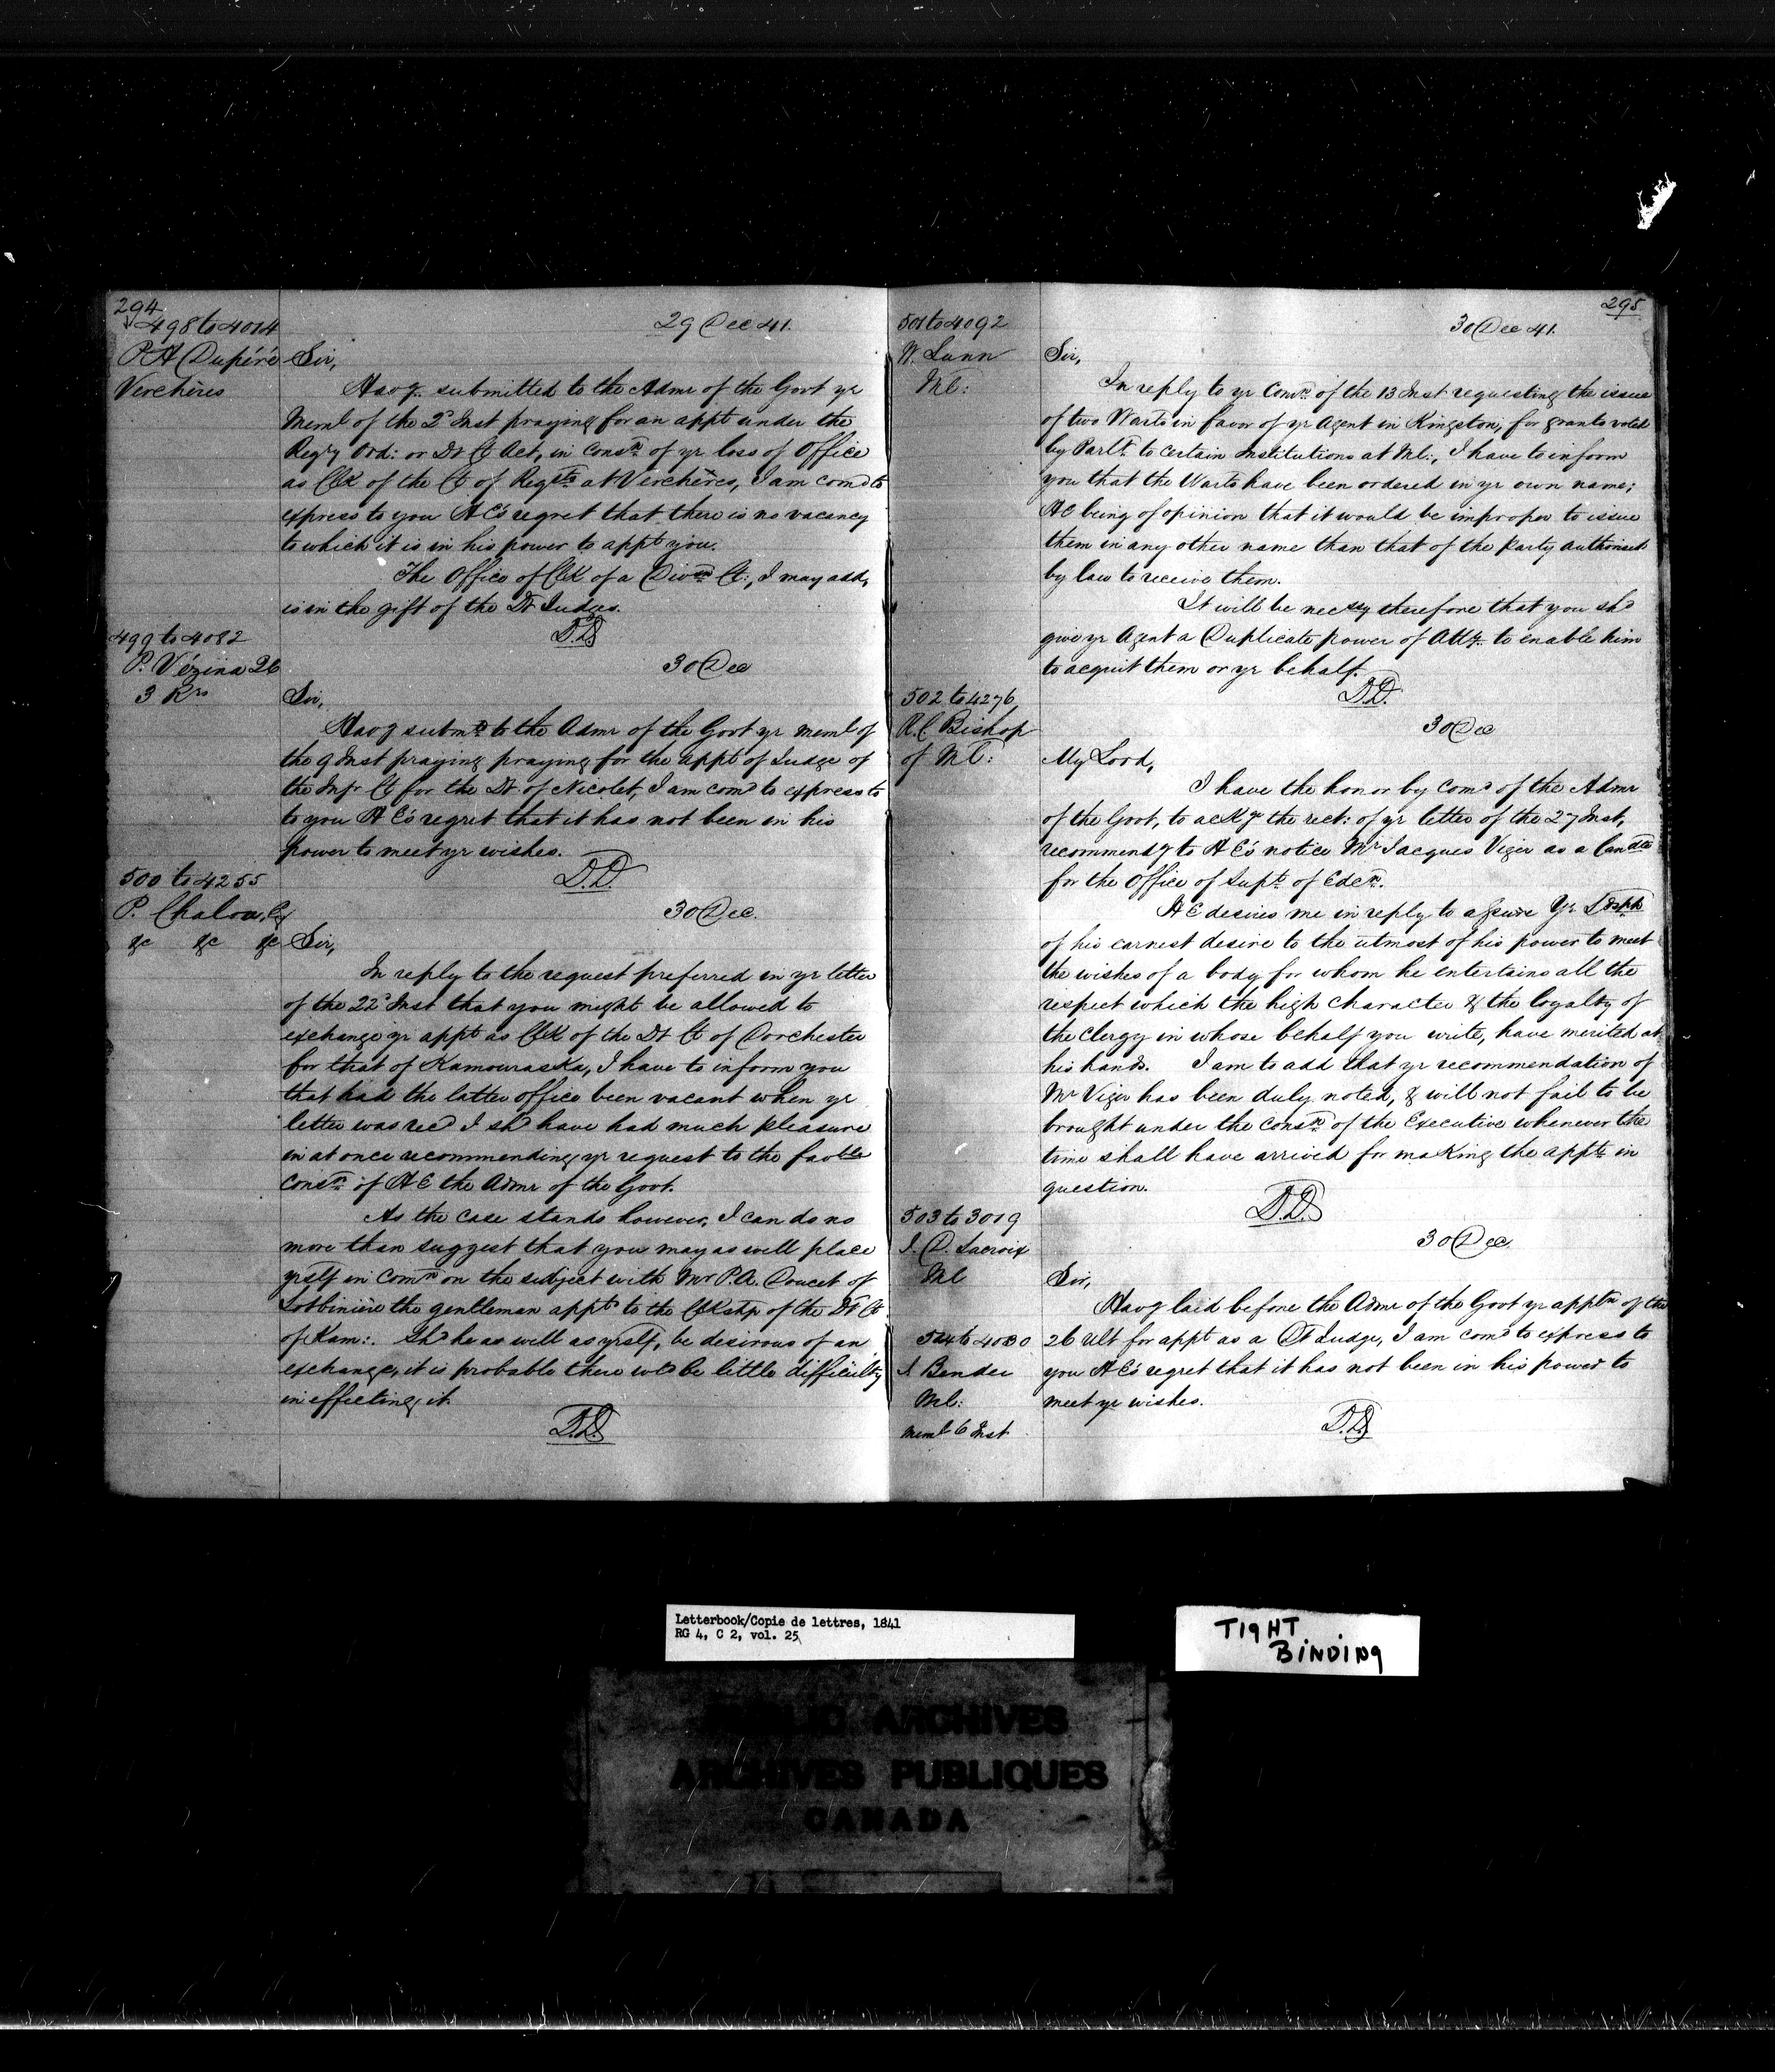 294
498 to 4014
29 Dec 41.
P A Dupéré
Verchères
Sir,
Havg submitted to the Admr of the Govt yr
Meml of the 2d Inst praying for an appt under the
Reg'y Ord: or Dt Ct Act, in consn of yr loss of Office
as Clk of the Ct of Reqsts at Verchères, I am comd to
express to you H E's regret that there is no vacancy
to which it is in his power to appt you.
The Office of Clk of a Divn Ct:, I may add,
is in the gift of the Dt Judges.
D.D
499 to 4082
P. Vézina 26
3 Rrs
30 Dec
Sir,
Havg submd to the Admr of the Govt yr meml of
the 9 Inst praying praying for the appt of Judge of
the Infr Ct for the Dt of Nicolet, I am comd to express to
to you H E's regret that it has not been in his
power to meet yr wishes.
D.D.
500 to 4255
P. Chalou, Es
&c &c &c
30 Dec.
Sir,
In reply to the request preferred in yr letter
of the 22d Inst that you might be allowed to
exchange yr appt as Clk of the Dt Ct of Dorchester
for that of Kamouraska, I have to inform you
that had the latter office been vacant when yr
letter was recd I shd have had much pleasure
in at once recommending yr request to the favble
consn of H E the Admr of the Govt.
As the case stands however, I can do no
more than suggest that you may as well place
yrself in comn on the subject with Mr P.A. Doucet of
Lotbinière the gentleman appd to the Clkshp of the Dt Ct
of Kam:. Shd he as well as yrself, be desirous of an
exchange, it is probable there wld be little difficulty
in effecting it.
D.D
295
501 to 4092
W. Lunn
Ml:
30 Dec 41.
Sir,
In reply to yr Comn of the 13 Inst requesting the issue
of two Warts in favor of yr Agent in Kingston, for grants voted
by Parlt to certain Institutions at Ml:, I have to inform
you that the Warts have been ordered in yr own name;
H E being of opinion that it would be improper to issue
them in any other name than that of the Party authorised
by law to receive them.
It will be necssy therefore that you shd
give yr Agent a Duplicate power of Atty to enable him
to acquit them or yr behalf.
D.D.
502 to 4276
R.C Bishop
of Ml:
30 Dec
My Lord,
I have the honor by comd of the Admr
of the Govt, to ackge the rect: of yr letter of the 27 Inst,
recommendg to H E's notice Mr Jacques Viger as a Candte
for the Office of Supt of Edcn.
H E desires me in reply to assure Yr Lordshp
of his earnest desire to the utmost of his power to meet
the wishes of a body for whom he entertains all the
respect which the high character & the loyalty of
the clergy in whose behalf you write, have merited at
his hands. I am to add that yr recommendation of
Mr Viger has been duly noted, & will not fail to be
brought under the consn of the Executive whenever the
time shall have arrived for making the appts in
question.
D.D.
503 to 3019
J. D. Lacroix
Ml
30 Dec.
Sir,
Havg laid before the Admr of the Govt yr appltn of the
26 Ult for appt as a Dt Judge, I am comd to express to
you H E's regret that it has not been in his power to
meet yr wishes.
D.D.
504 to 4030
Bender
Ml:
Meml 6 Inst
Letterbook/Copie de lettres, 1841
RG 4, C 2, vol. 25
TIGHT
BINDING
PUBLIC ARCHIVES
ARCHIVES PUBLIQUES
CANADA